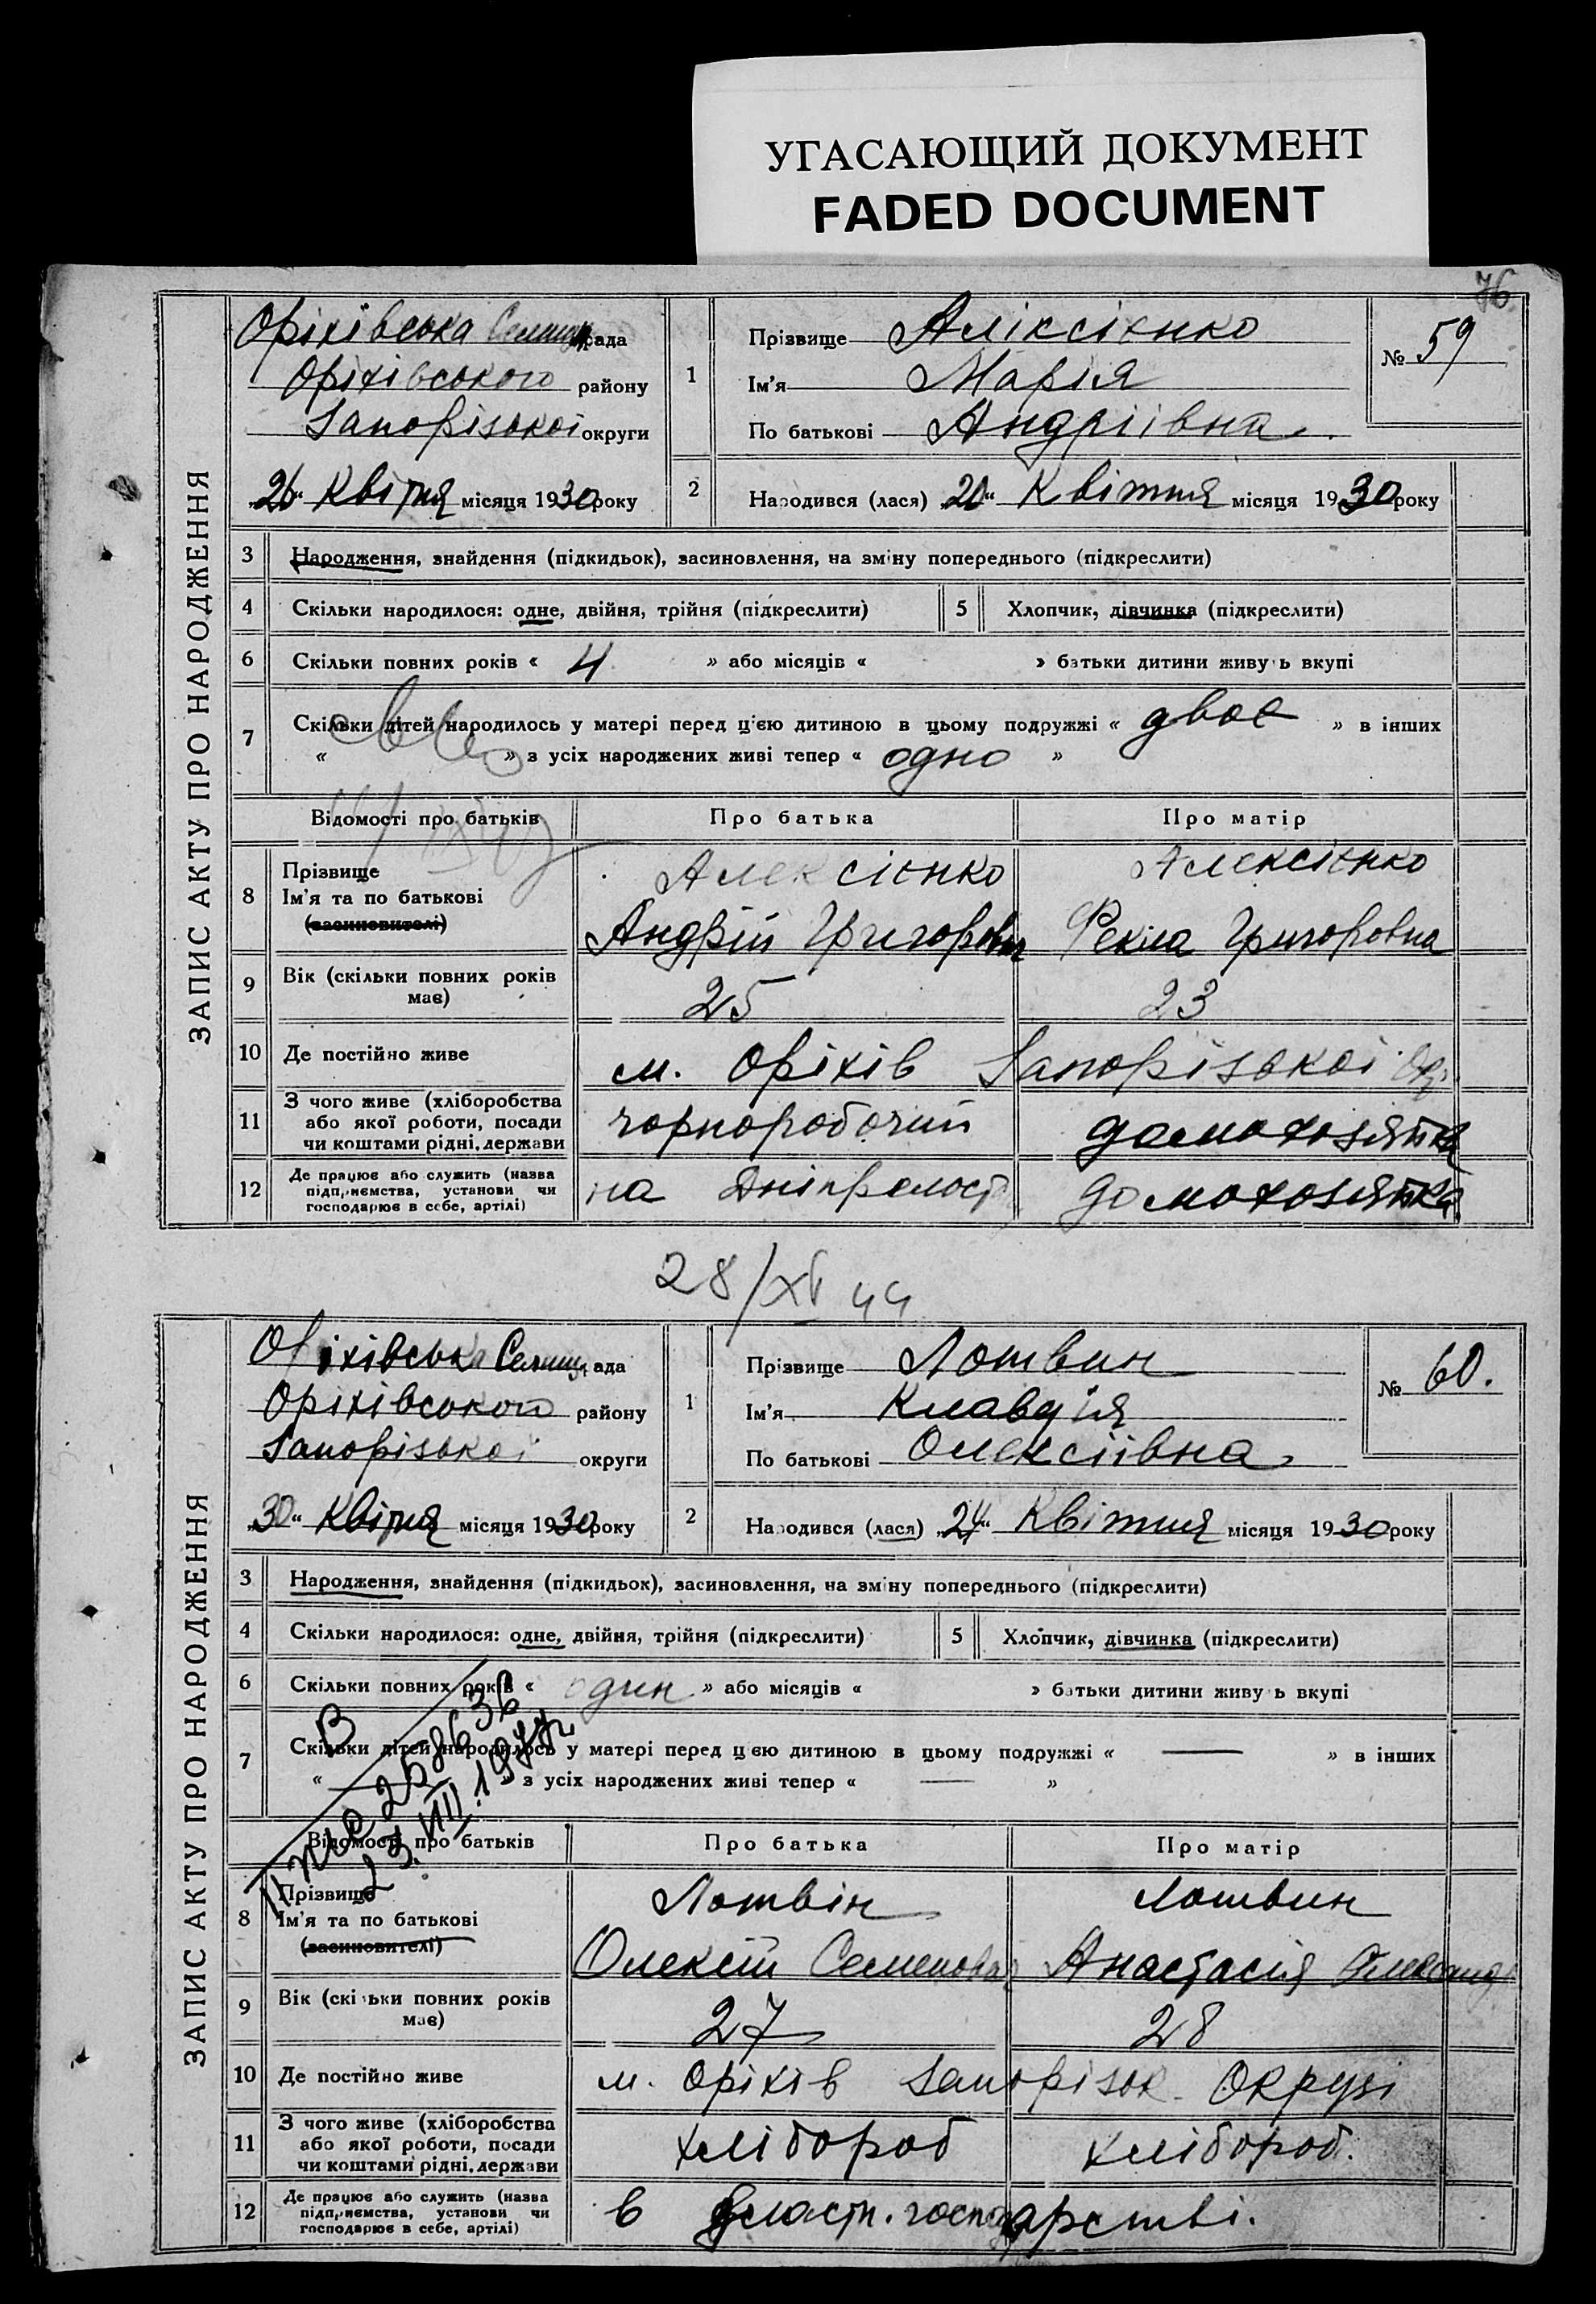 УГАСАЮЩИЙ ДОКУМЕНТ
FADED DOCUMENT
76
ЗАПИС АКТУ ПРО НАРОДЖЕННЯ
Оріхівська Селищ рада
Оріхівського району
Запорізької округи
„26“ Квітня місяця 1930 року
1
Прізвище Аліксієнко
Ім'я Марія
По батькові Андріївна
№ 59
2 Народився (лася) „20“ Квітня місяця 1930 року
3 Народження, знайдення (підкидьок), засиновлення, на зміну попереднього (підкреслити)
4 Скільки народилося: одне, двійня, трійня (підкреслити) 5 Хлопчик, дівчинка (підкреслити)
6 Скільки повних років « 4 » або місяців « » батьки дитини живуть вкупі
7 Скільки дітей народилось у матері перед цією дитиною в цьому подружжі « двоє » в інших
« » з усіх народжених живі тепер « одно »
Відомості про батьків Про батька Про матір
8 Прізвище Алексієнко Алексієнко
Ім'я та по батькові Андрій Григорович Фекла Григоровна
(засиновителі)
9 Вік (скільки повних років має) 25 23
10 Де постійно живе м. Оріхів Запорізької Окр.
11 З чого живе (хліборобства або якої роботи, посади чи коштами рідні, держави чорноробочий домохозяйка
12 Де працює або служить (назва підприємства, установи чи господарює в себе, артілі) на домохозяйка
28/XI 44
ЗАПИС АКТУ ПРО НАРОДЖЕННЯ
Оріхівська Селищ рада
Оріхівського району
Запорізької округи
„30“ Квітня місяця 1930 року
1
Прізвище Лотвин
Ім'я Клавдія
По батькові Олексіївна
№ 60.
2 Народився (лася) „24“ Квітня місяця 1930 року
3 Народження, знайдення (підкидьок), засиновлення, на зміну попереднього (підкреслити)
4 Скільки народилося: одне, двійня, трійня (підкреслити) 5 Хлопчик, дівчинка (підкреслити)
6 Скільки повних років « один » або місяців « » батьки дитини живуть вкупі
7 Скільки дітей народилось у матері перед цією дитиною в цьому подружжі « — » в інших
« — » з усіх народжених живі тепер « — »
Відомості про батьків Про батька Про матір
8 Прізвище Лотвін Лотвин
Ім'я та по батькові Олексій Семенович Анастасія Олександ
(засиновителі)
9 Вік (скільки повних років має) 27 28
10 Де постійно живе м. Оріхів Запорізьк. Округі
11 З чого живе (хліборобства або якої роботи, посади чи коштами рідні, держави хлібороб хлібороб.
12 Де працює або служить (назва підприємства, установи чи господарює в себе, артілі) в власт. господарстві.